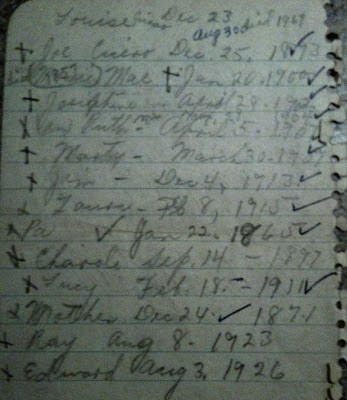 Louise Dec 23
Aug 30 died 1969
+ Joe Cicero Dec. 25, 1893 ✓
Mae + Jan 20. 1900 ✓
+ Josephine April 28. ✓
Ruth - April 5. ✓
+ Marty - March 30. ✓
+ Jim - Dec 4, 1913. ✓
x Laura - Feb 8, 1915 ✓
x Pa ✓ Jan 22. 1865 ✓
x Charle Sep. 14 - 1897
x Lucy Feb. 18 - 1911 ✓
x Mother Dec 24. ✓ 1871
x Ray Aug 8. 1923
x Edward Aug 3, 1926